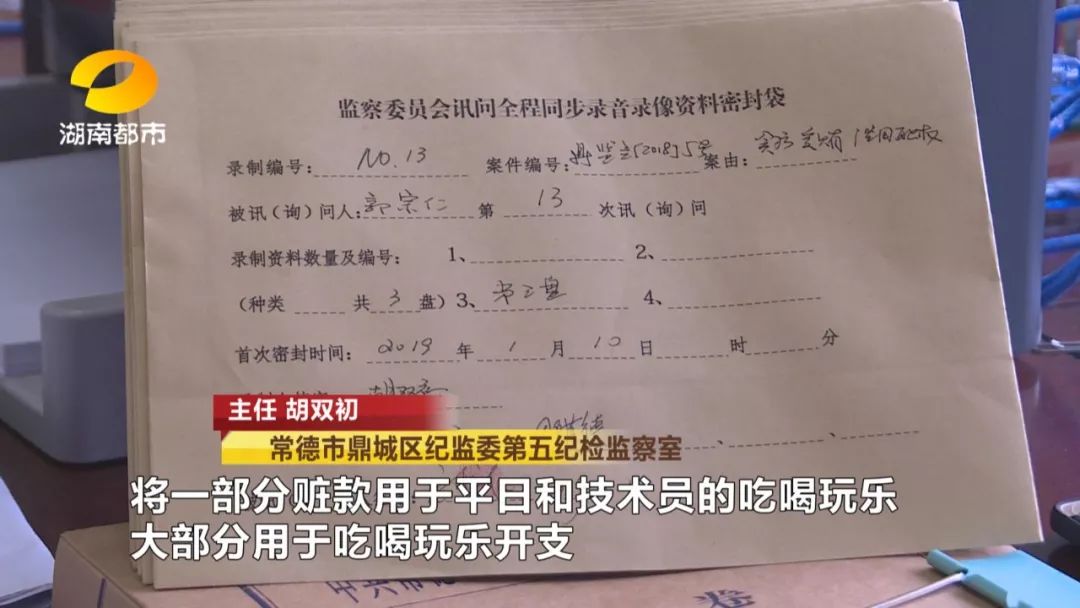 湖南都市
监察委员会讯问全程同步录音录像资料密封袋
录制编号: NO.13 案件编号: 鼎监立[2018]5号 案由:
被讯（询）问人: 郭宗仁 第 13 次讯（询）问
录制资料数量及编号: 1、 2、
（种类 共 3 盘） 3、 第三盘 4、
首次密封时间: 2019 年 1 月 10 日 时 分
胡双初
主任 胡双初
常德市鼎城区纪监委第五纪检监察室
将一部分赃款用于平日和技术员的吃喝玩乐
大部分用于吃喝玩乐开支